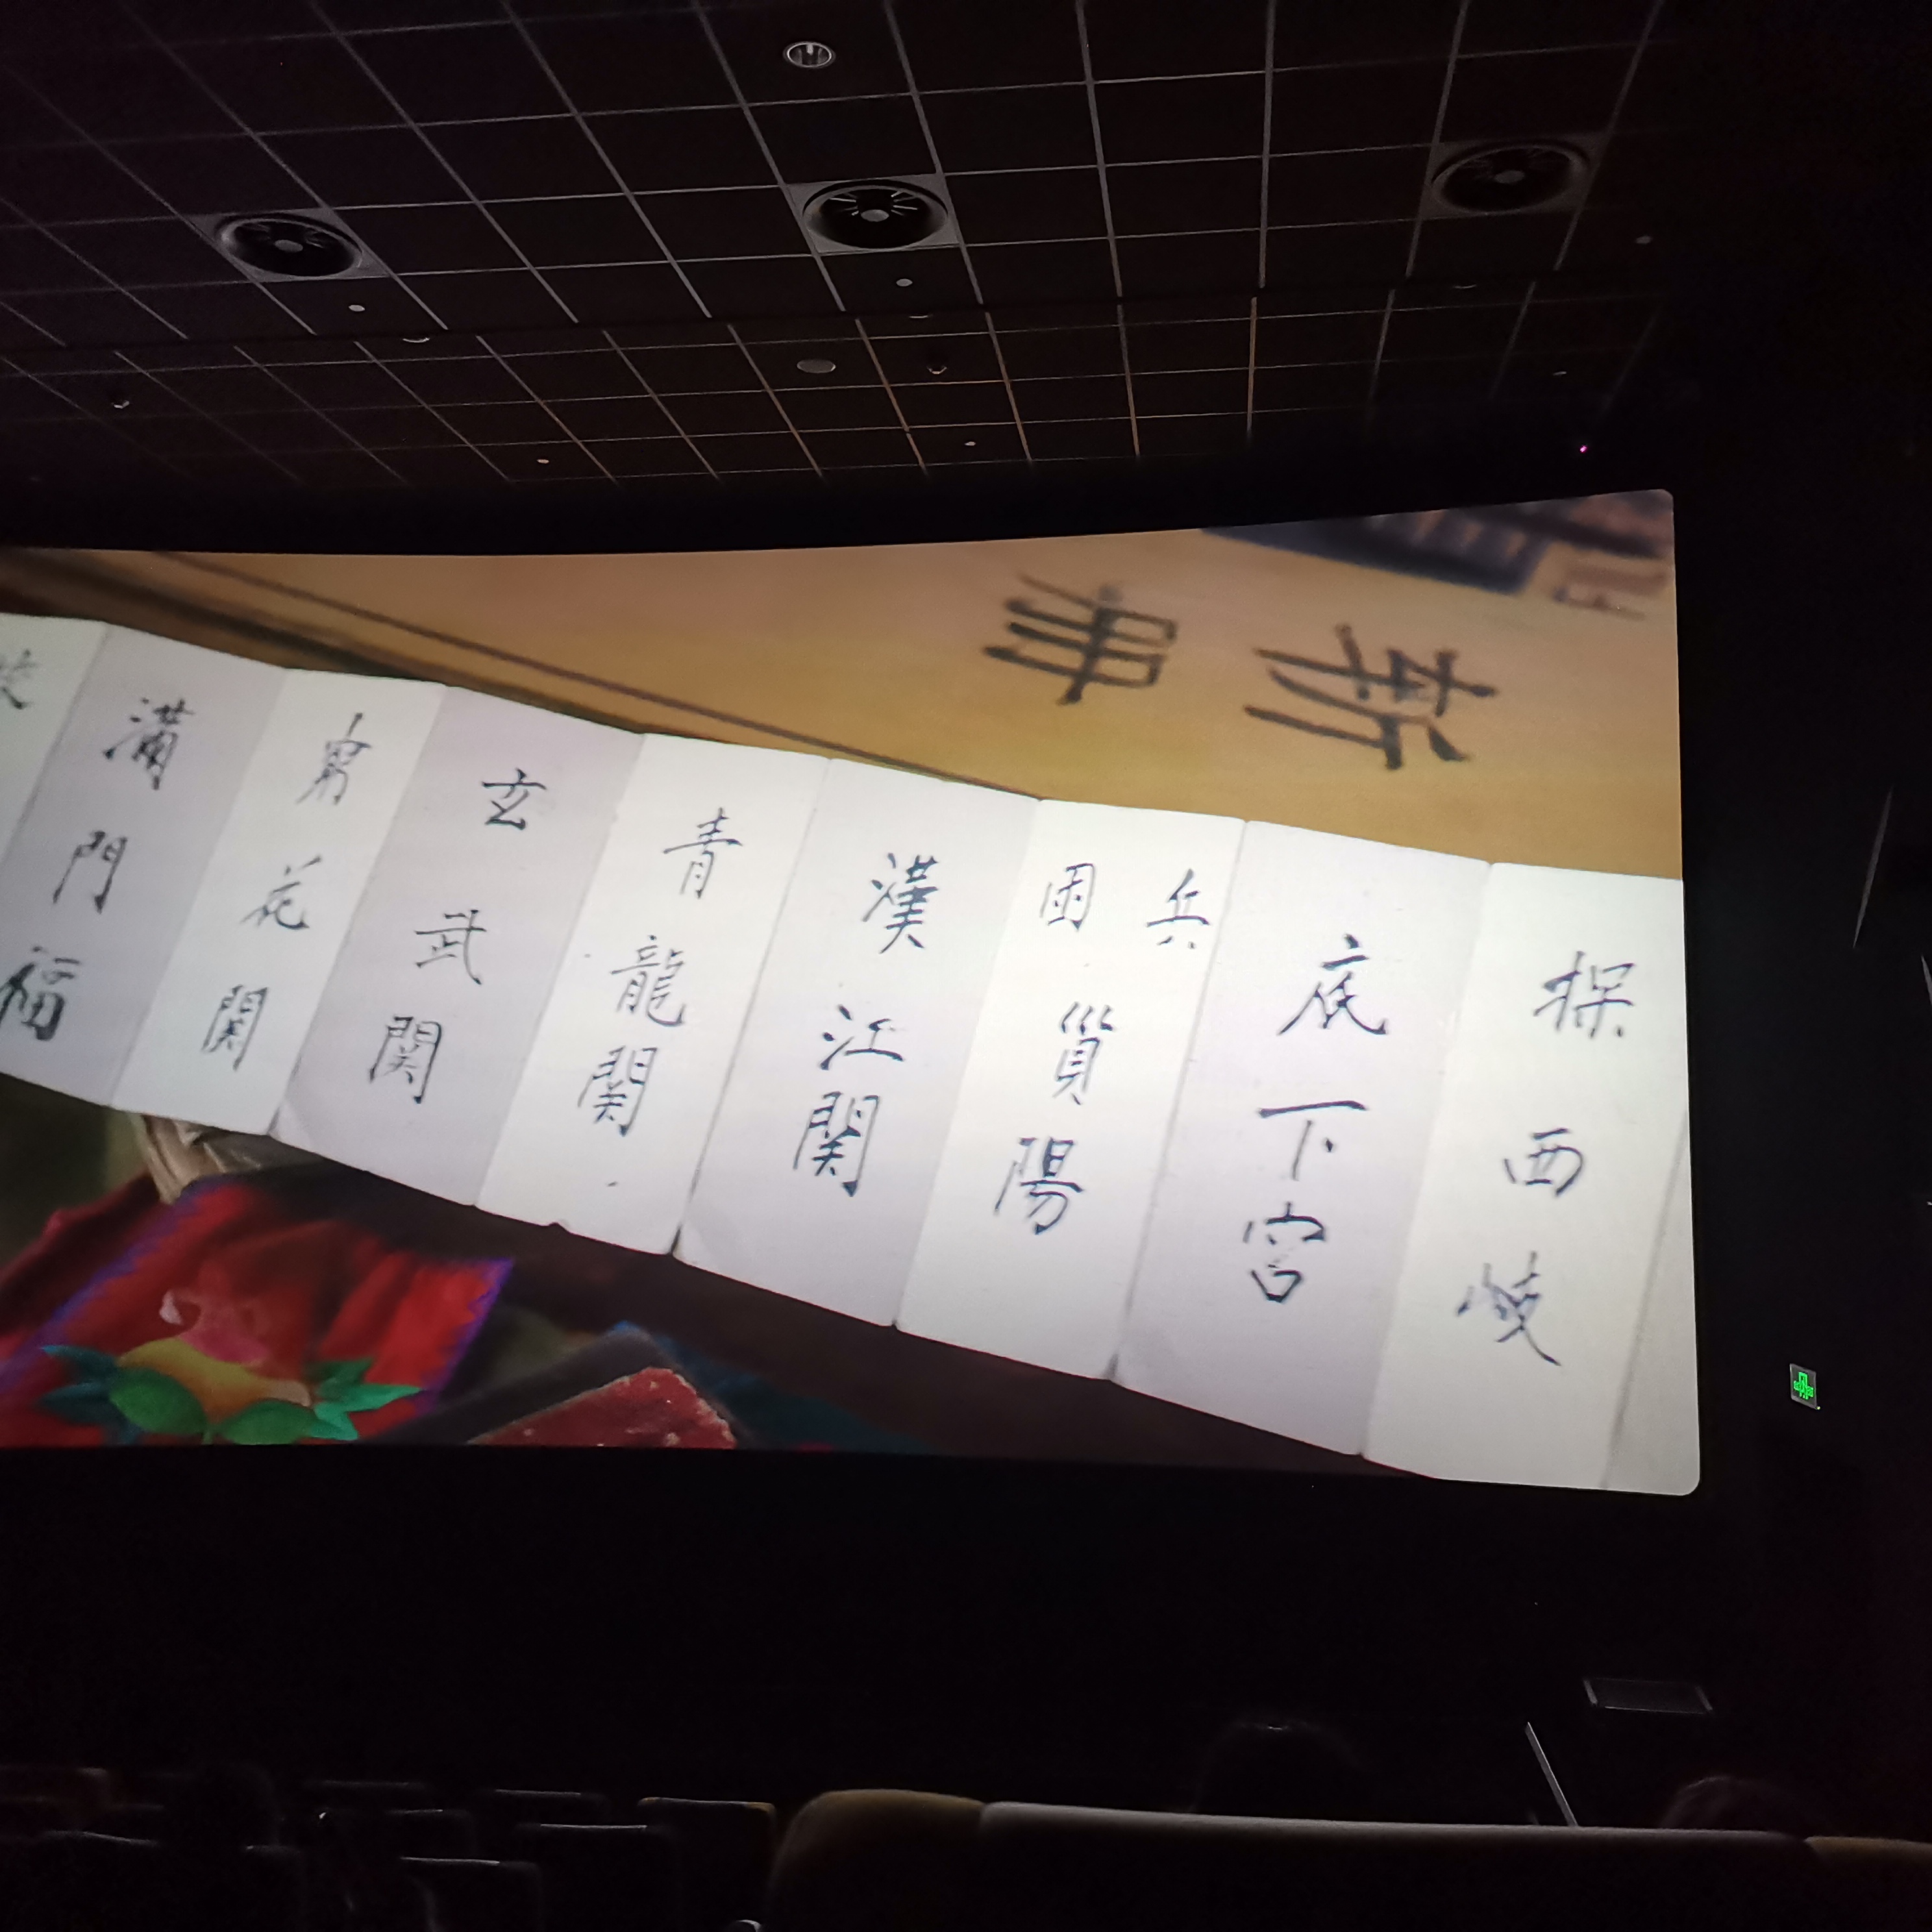 探西岐
底下宮
兵
困陽
漢江関
青龍関
玄武関
花関
滿門福